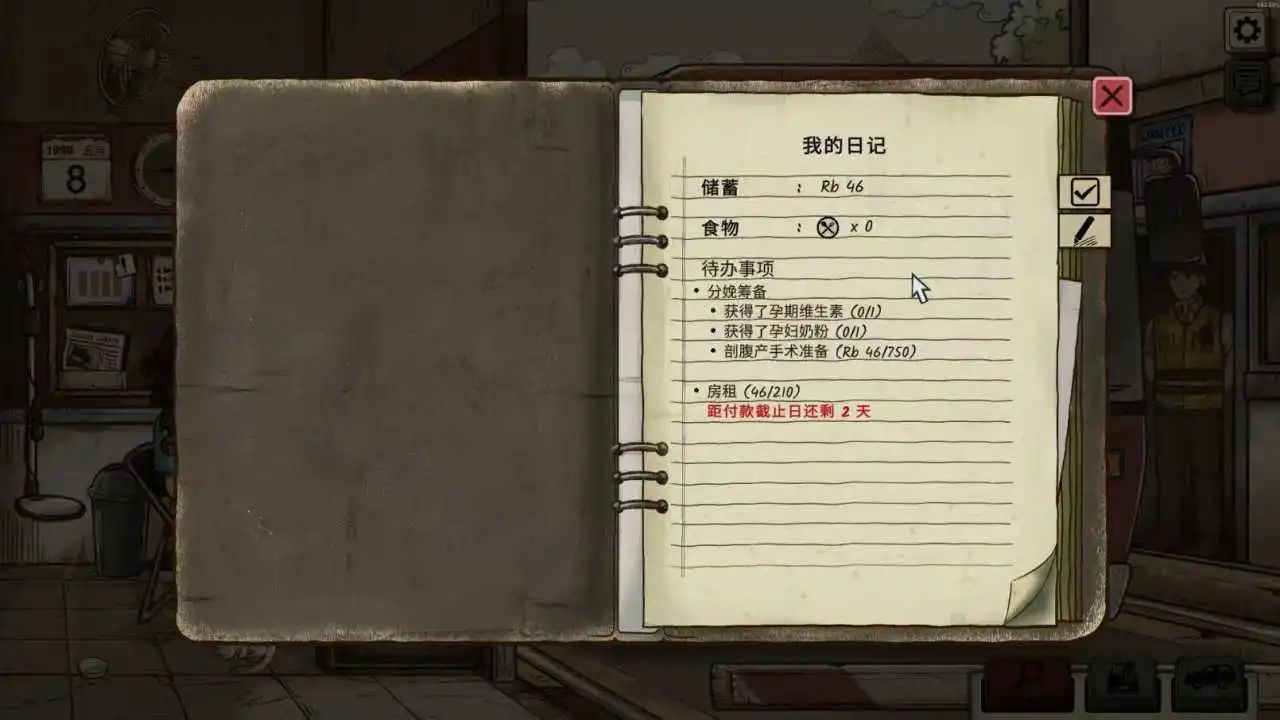 1998 五月
8
WANTED
我的日记
储蓄 : Rb 46
食物 : x 0
待办事项
• 分娩筹备
• 获得了孕期维生素 (0/1)
• 获得了孕妇奶粉 (0/1)
• 剖腹产手术准备 (Rb 46/750)
• 房租 (46/210)
距付款截止日还剩 2 天